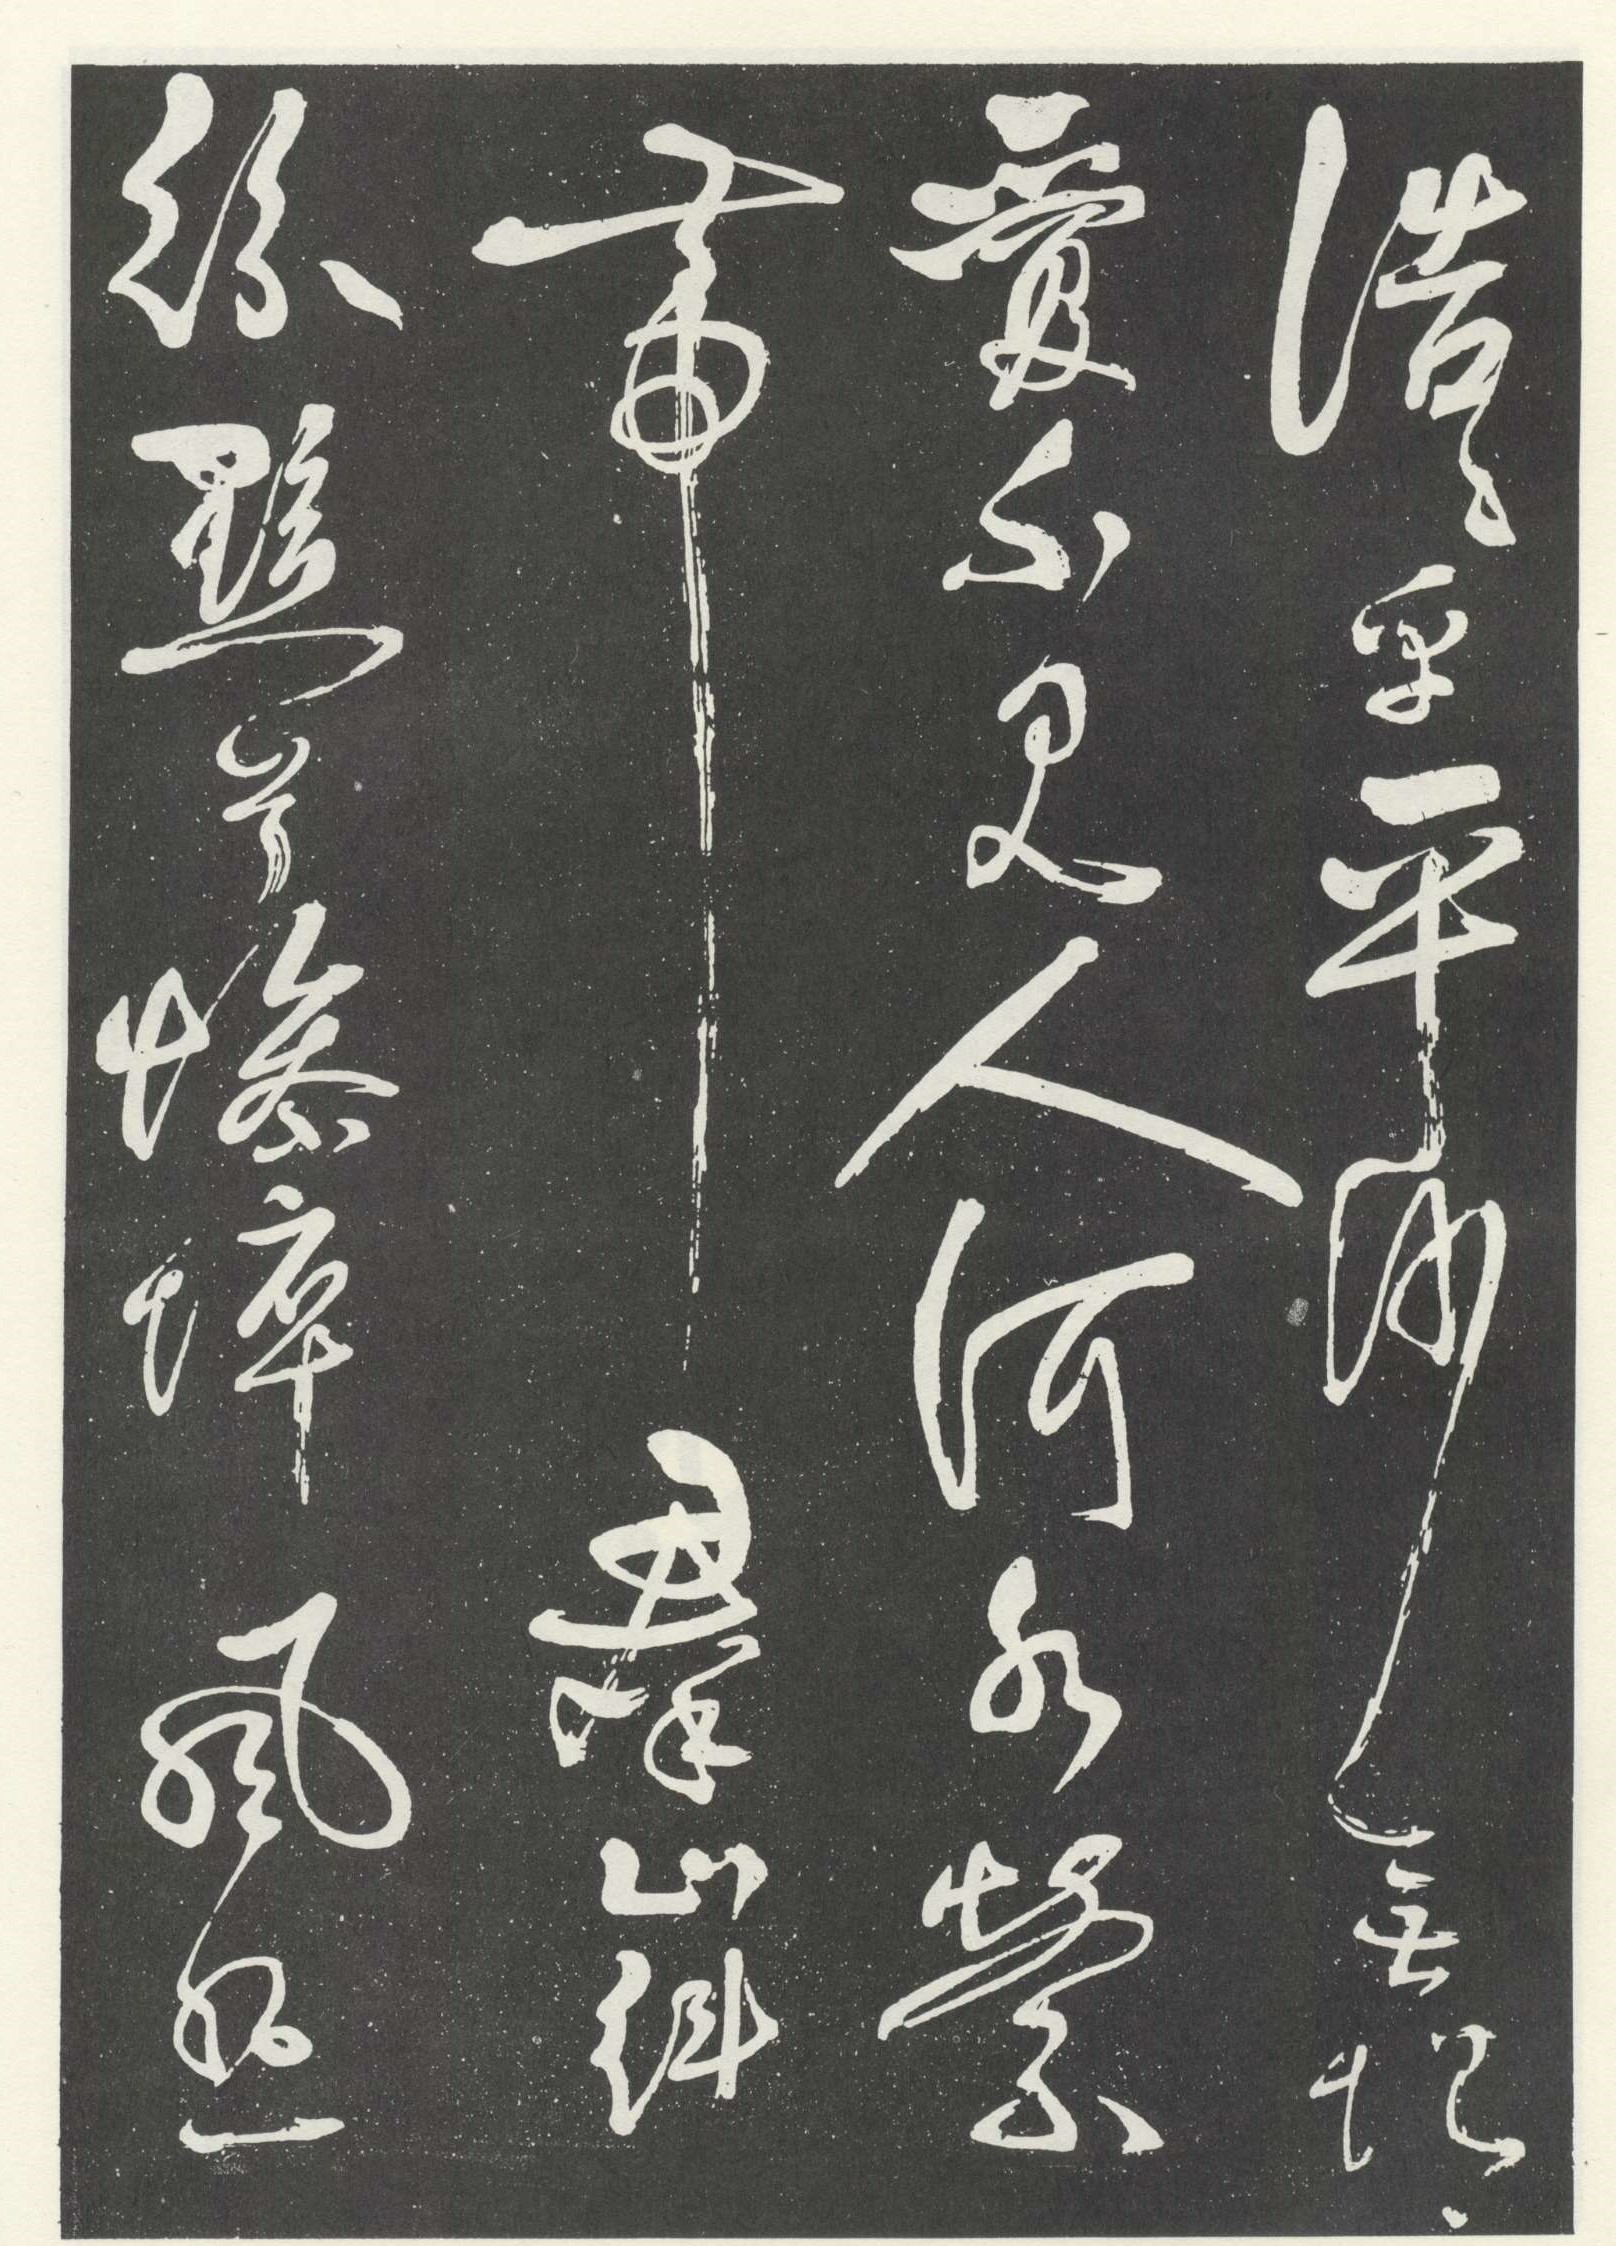 浩〻乎平沙無垠
夐不見人河水縈
帶羣山糾
紛黯兮慘悴風悲